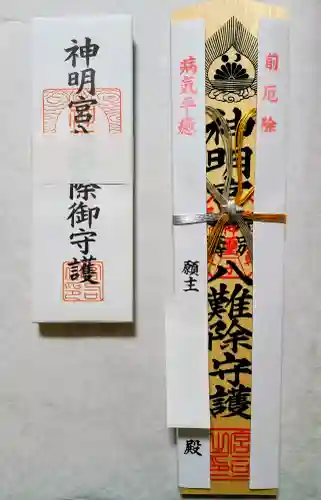 神明宮
除御守護
病気平癒
前厄除
神明宮
八難除守護
願主
殿